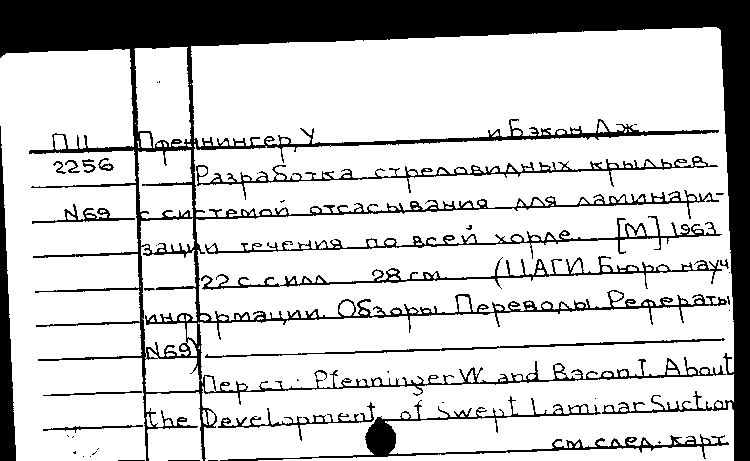 П11 Пфеннингер, У и Бэкон, Дж.
2256 Разработка стреловидных крыльев
N69 с системой отсасывания для ламинари-
зации течения по всей хорде. [М], 1963
22 с с илл 28 см (ЦАГИ. Бюро науч
информации. Обзоры. Переводы. Рефераты
N69).
Пер ст.: Pfenninger W. and Bacon J. About
the Development of Swept Laminar Suction
см. след. карт.